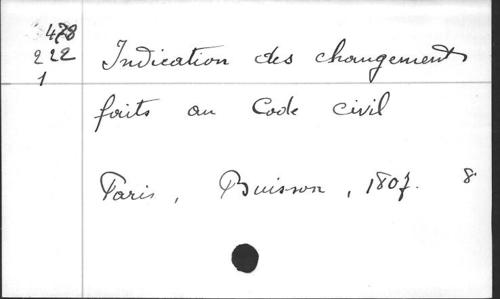 3478
222
1
Indication des changements
faits au Code civil
Paris, Buisson, 1807. 8